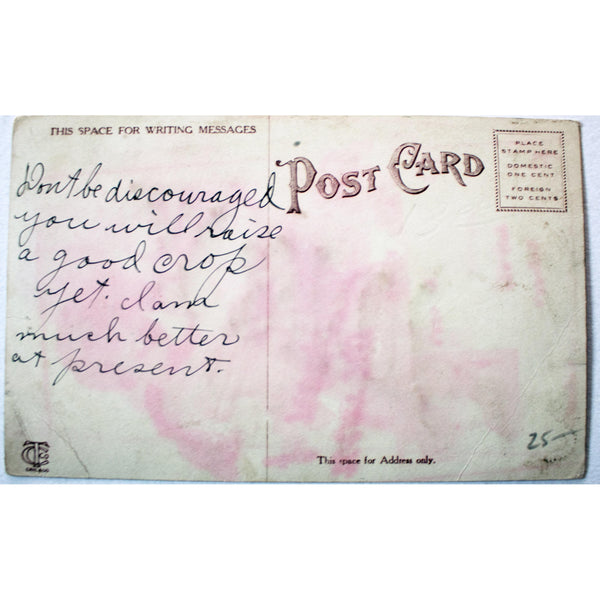 THIS SPACE FOR WRITING MESSAGES
Don't be discouraged
you will raise
a good crop
yet. I am
much better
at present.
POST CARD
PLACE
STAMP HERE
DOMESTIC
ONE CENT
FOREIGN
TWO CENTS
This space for Address only.
25—